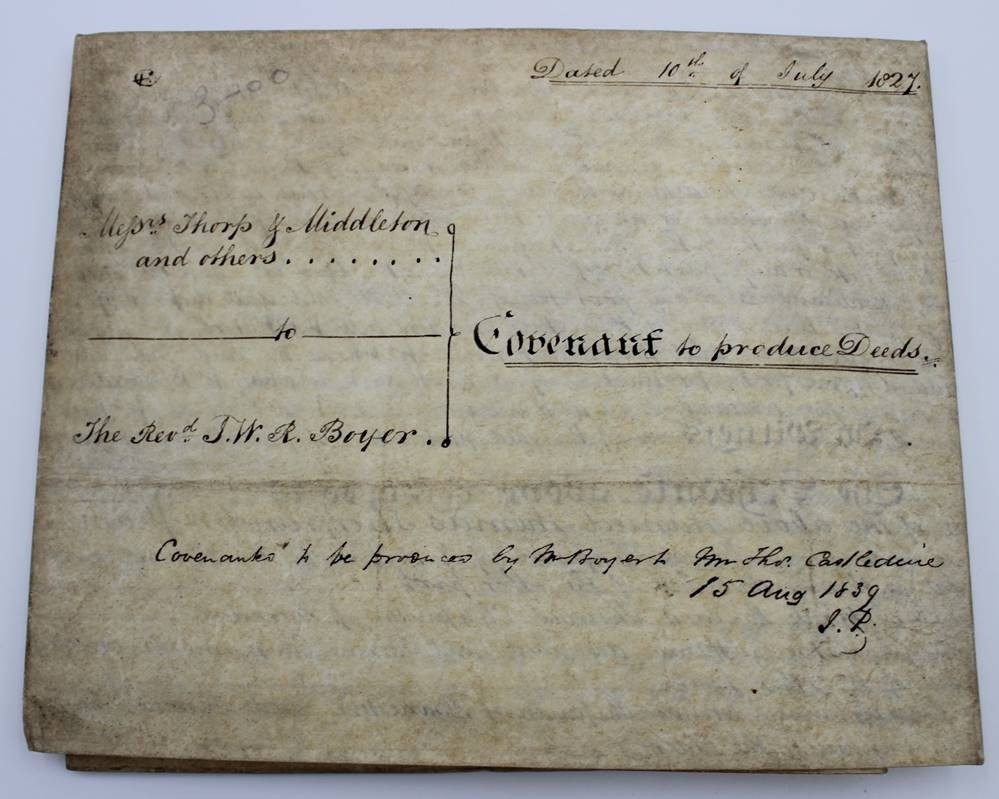 Dated 10th of July 1827.
3-00
Messrs Thorp & Middleton
and others . . . . . . . .
to
Covenant to produce Deeds.
The Revd. T. W. R. Boyer.
Covenanted to be produced by Mr Boyer to Mr Thos. Castledine
15 Aug 1839
J. P.